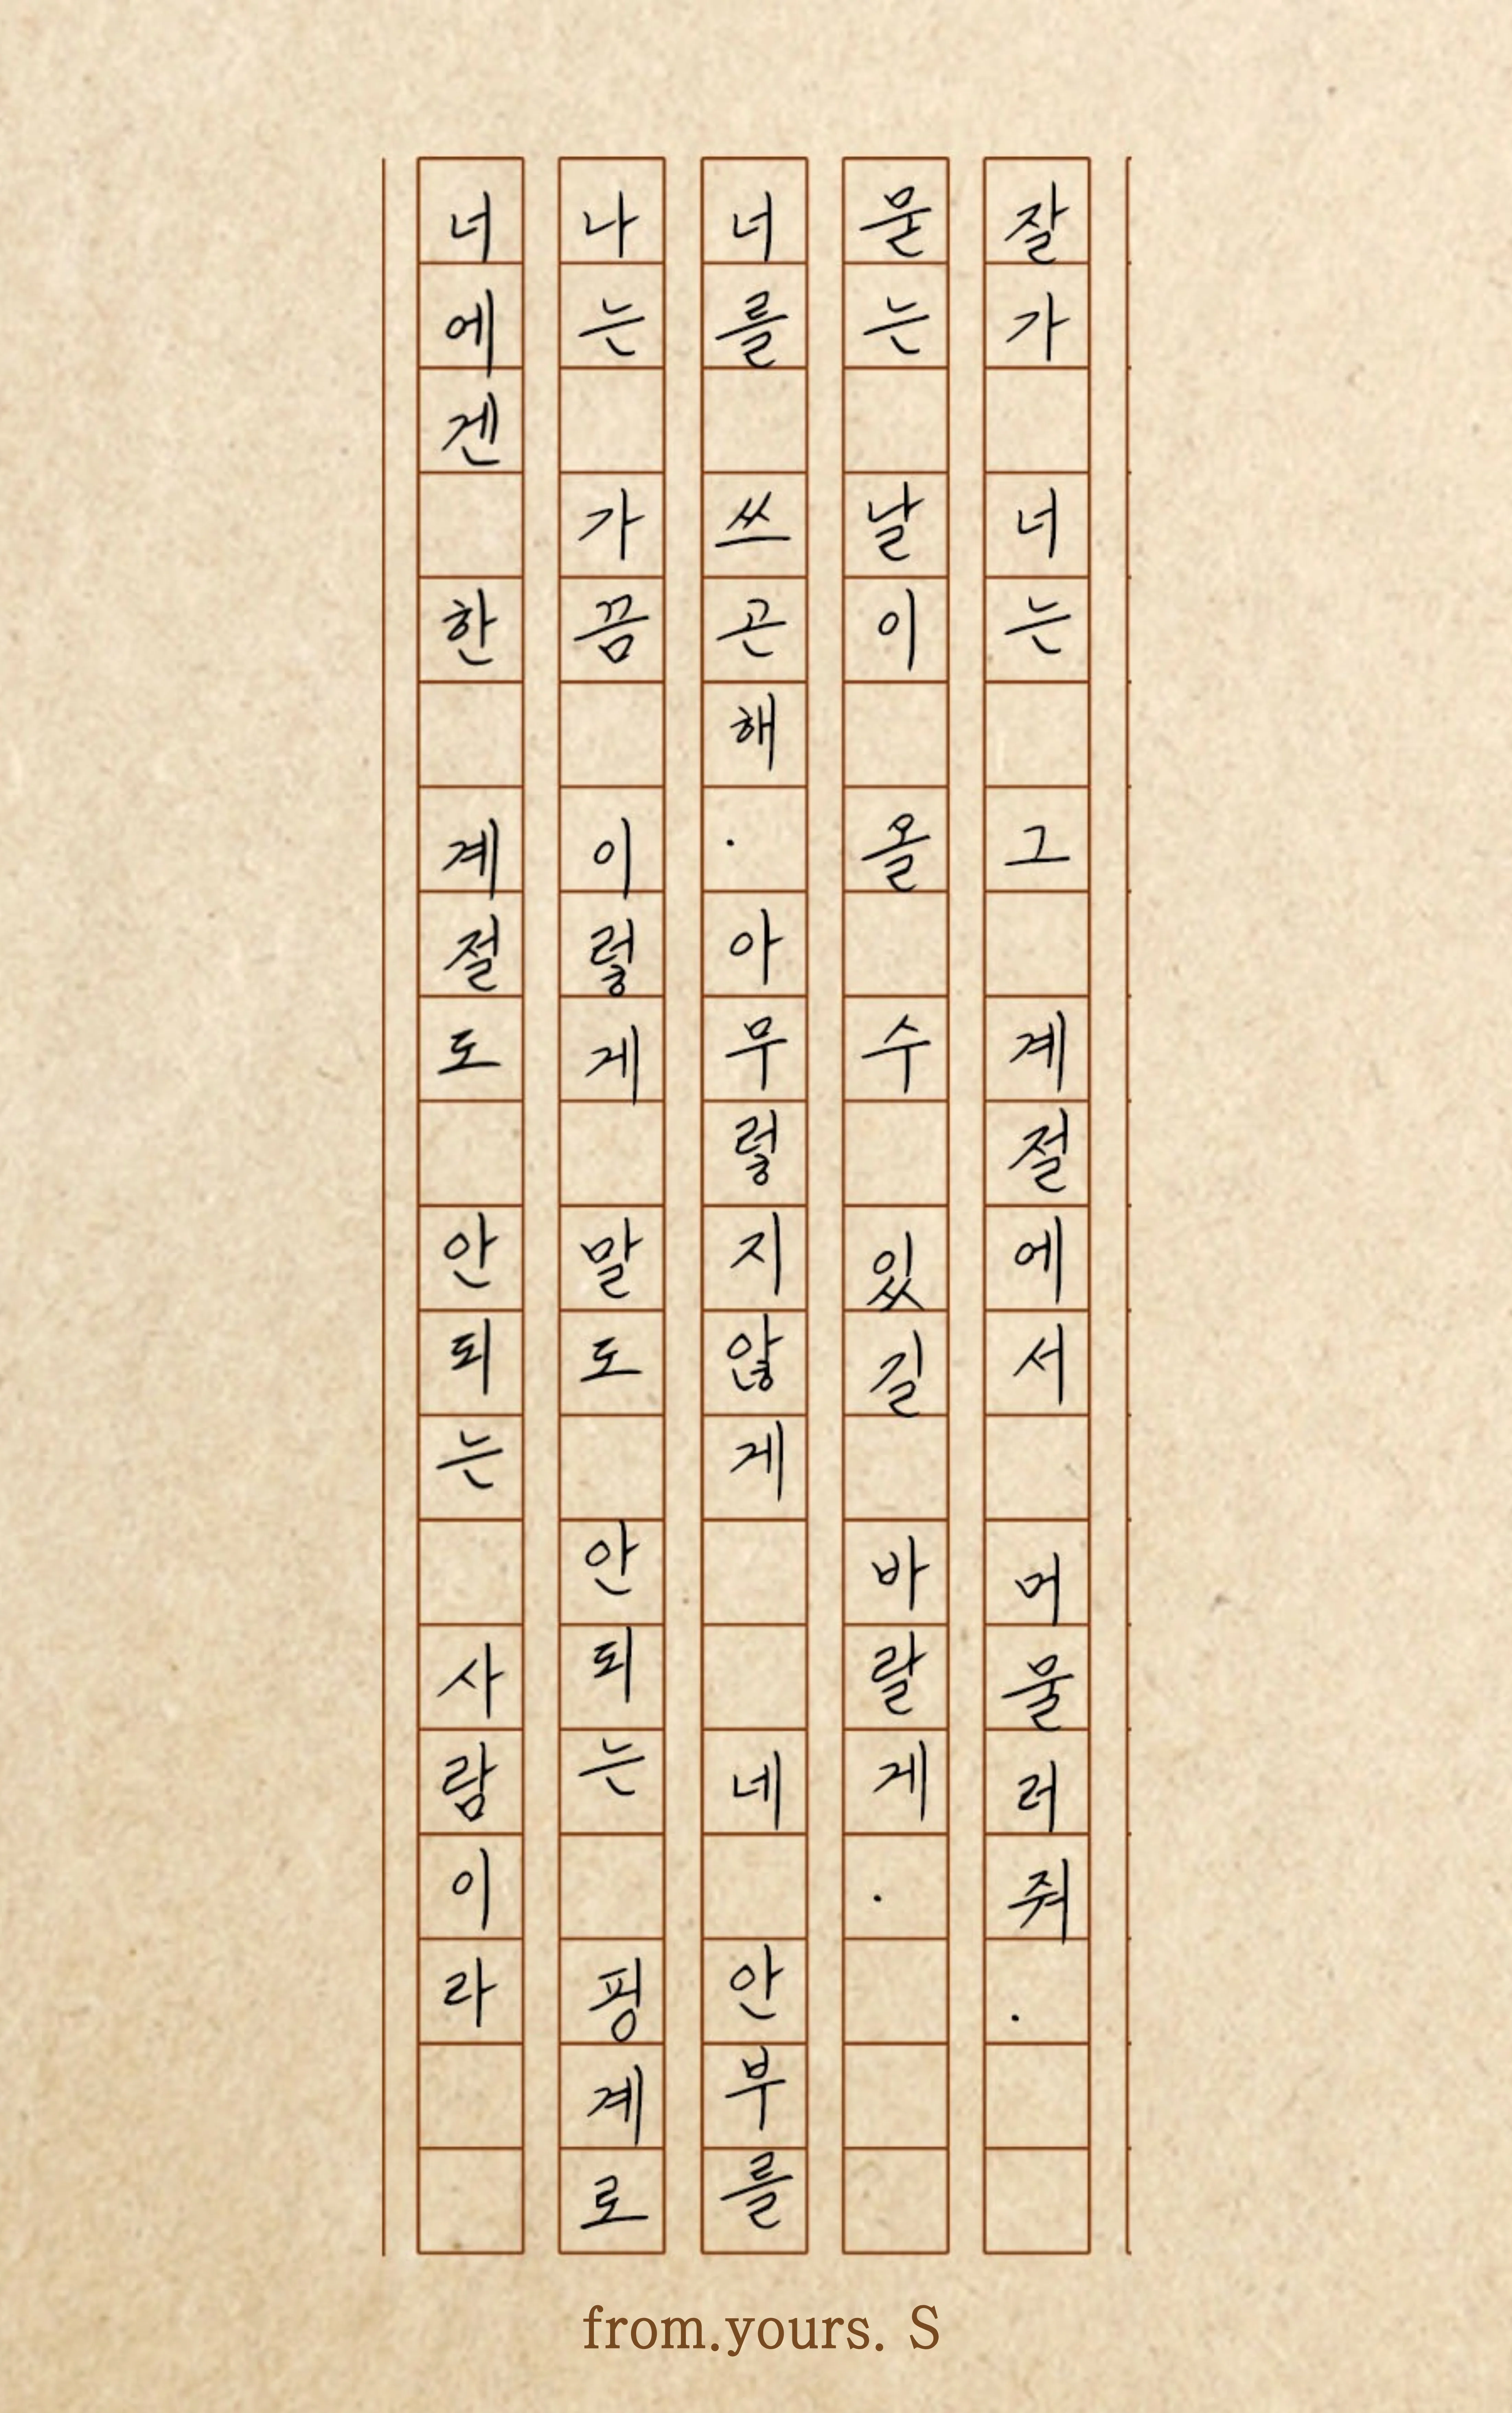 너에겐 한 계절도 안되는 사람이라
나는 가끔 이렇게 말도 안되는 핑계로
너를 쓰곤해. 아무렇지않게 네 안부를
묻는 날이 올 수 있길 바랄게.
잘가 너는 그 계절에서 머물러줘.
from.yours. S